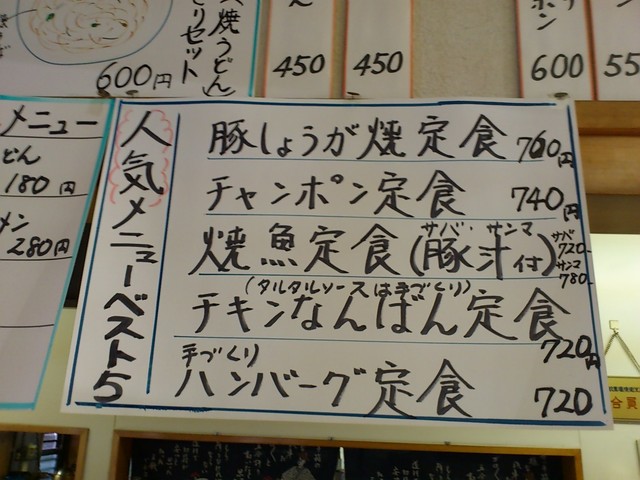 焼うどん
セット
600円
ん
450
450
ポン
600
55
メニュー
どん
180円
メン
280円
人気メニューベスト5
豚しょうが焼定食 760円
チャンポン定食 740円
サバ サンマ
焼魚定食(豚汁付) サバ720- サンマ780-
(タルタルソースは手づくり)
チキンなんばん定食 720円
手づくり
ハンバーグ定食 720